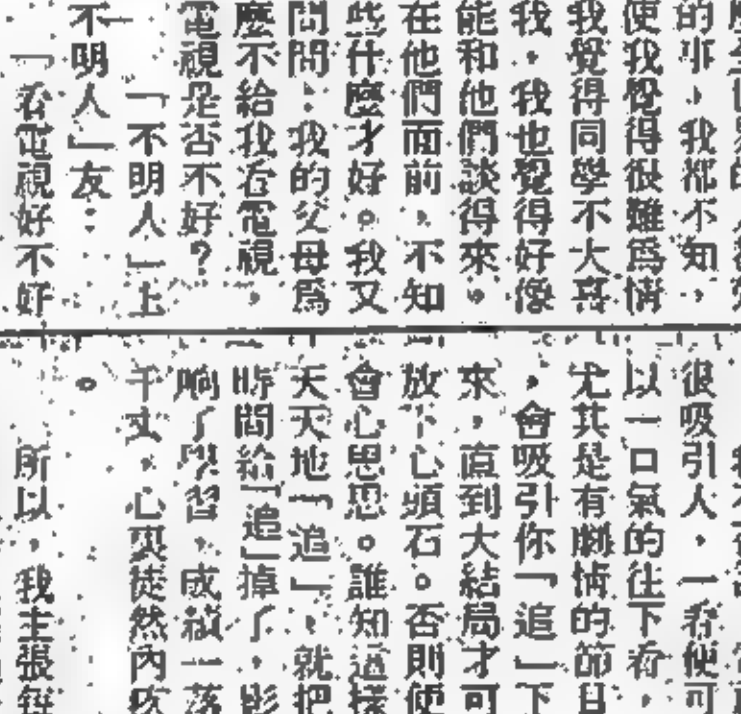 的事，我都不知，
使我覺得很難爲情
我覺得同學不大喜
我，我也覺得好像
能和他們談得來。
在他們面前，不知
些什麼才好。我又
問問：我的父母爲
麼不給我看電視，
電視是否不好？
「不明人」上
不明人」友：
「看電視好不好
很吸引人，一看便可
以一口氣的往下看，
尤其是有劇情的節目
，會吸引你「追」下
來，直到大結局才可
放下心頭石。否則便
會心思思。誰知這樣
天天地「追」，就把
時間給「追」掉了，影
响了學習，成績一落
千丈，心裏徒然內疚
。
所以，我主張每